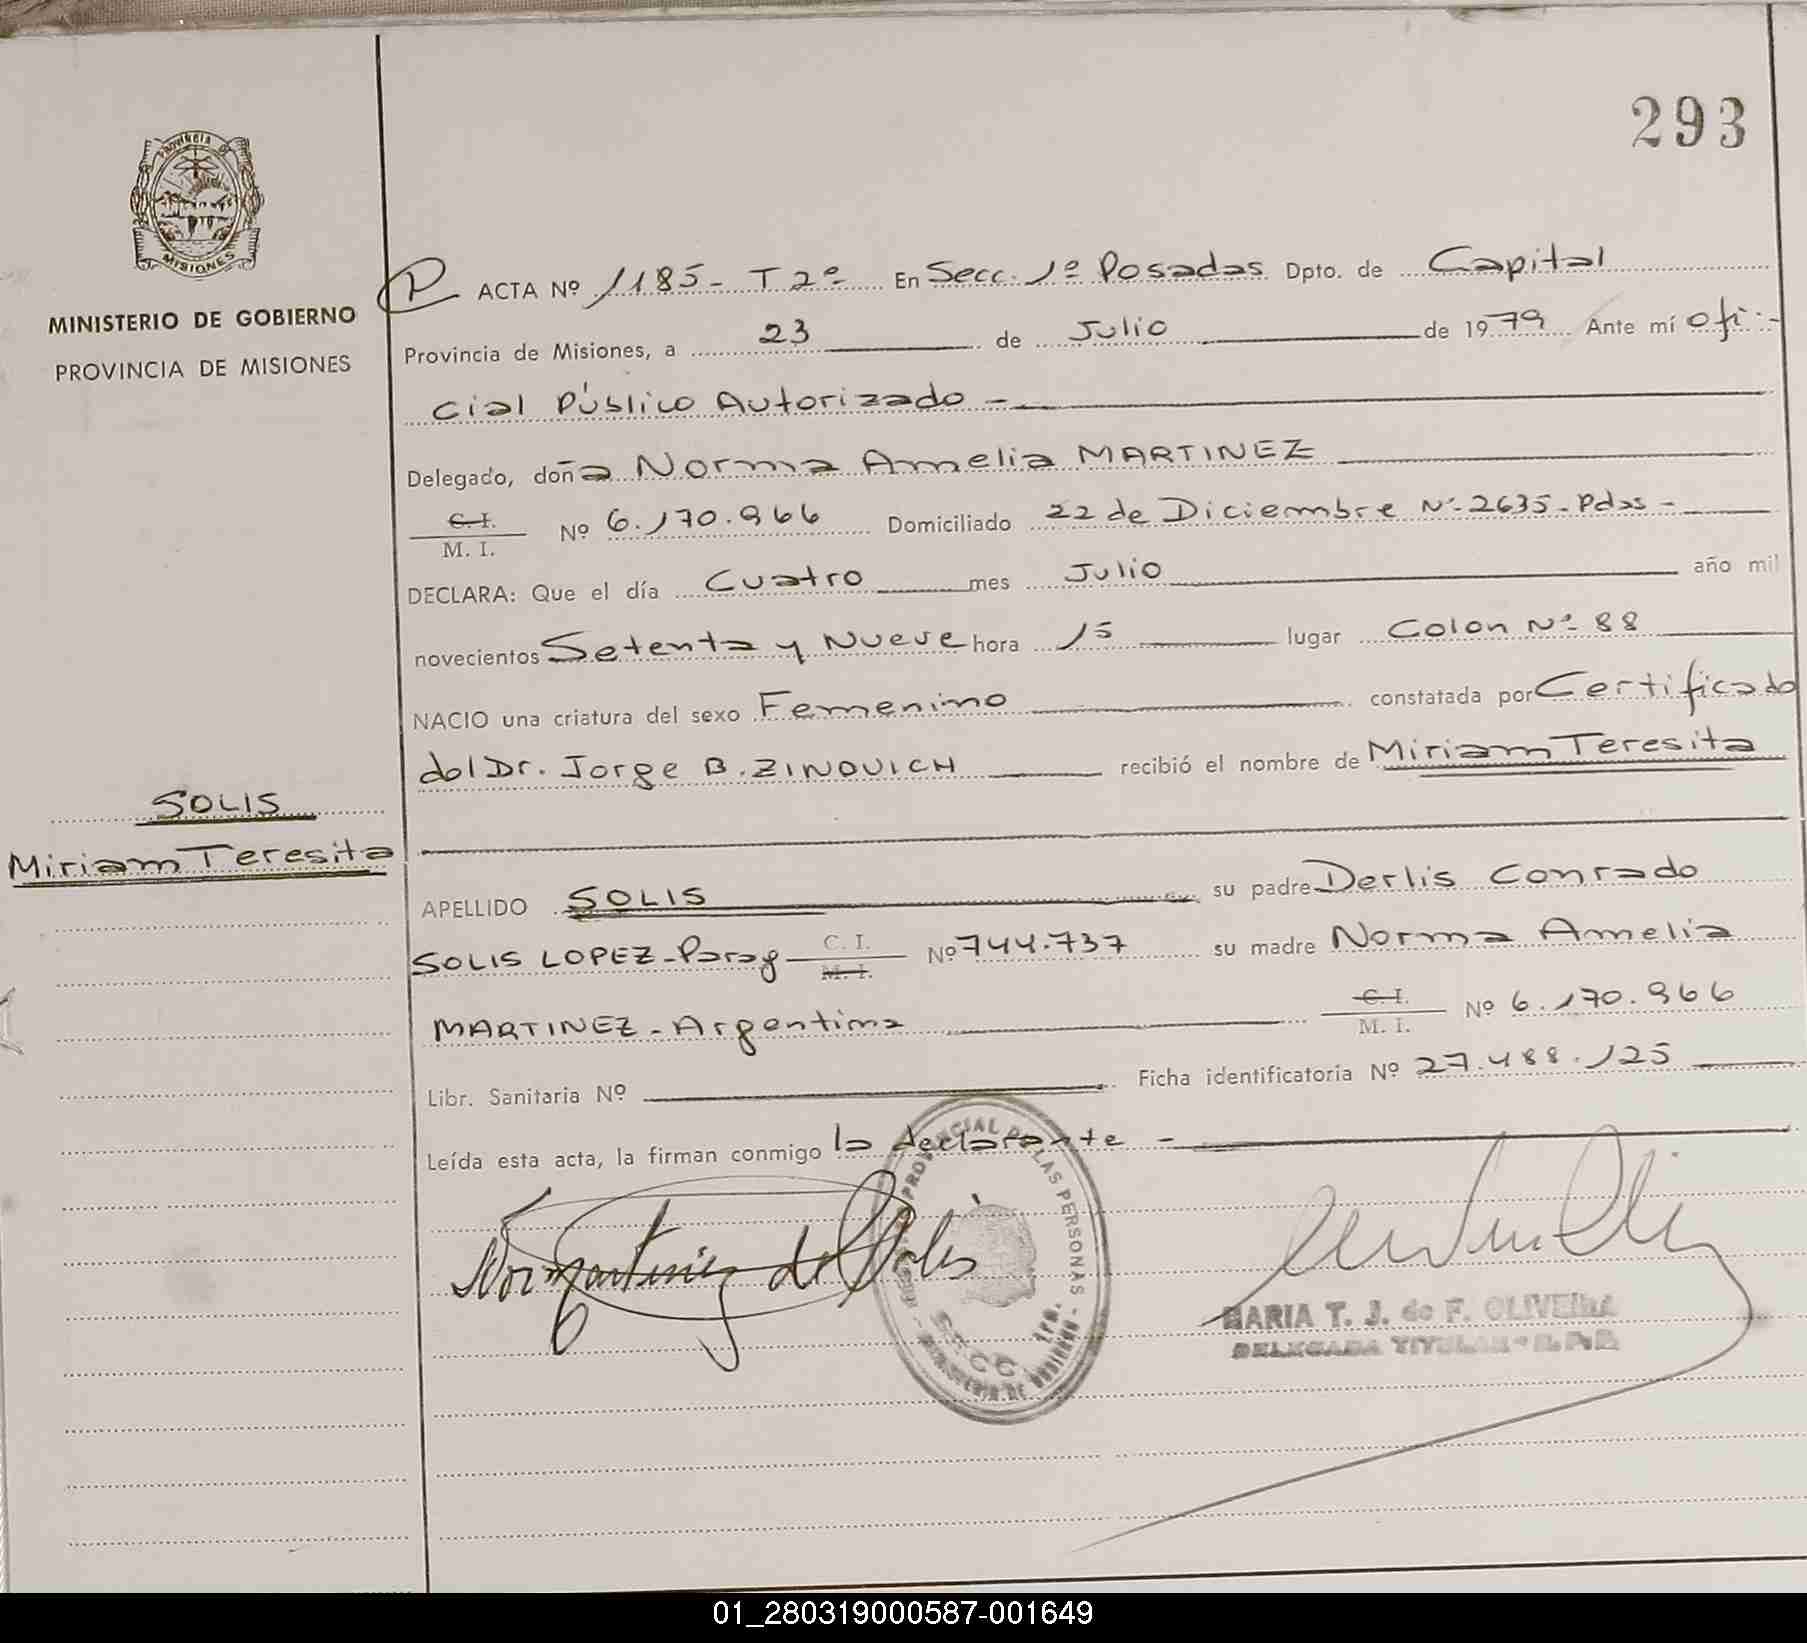 293
PROVINCIA DE
MISIONES
MINISTERIO DE GOBIERNO
PROVINCIA DE MISIONES
SOLIS
Miriam Teresita
P ACTA Nº 1185 - T 2º En Secc. 1º Posadas Dpto. de Capital
Provincia de Misiones, a 23 de Julio de 1979 Ante mí ofi-
cial Público Autorizado -
Delegado, doña Norma Amelia MARTINEZ
C. I.
M. I. Nº 6.170.966 Domiciliado 22 de Diciembre Nº 2635 - Pdas -
DECLARA: Que el día Cuatro mes Julio año mil
novecientos Setenta y Nueve hora 15 lugar Colon Nº 88
NACIO una criatura del sexo Femenino constatada por Certificado
del Dr. Jorge B. ZINOVICH recibió el nombre de Miriam Teresita
APELLIDO SOLIS su padre Derlis Conrado
SOLIS LOPEZ - Parag C. I. M. I. Nº 744.737 su madre Norma Amelia
MARTINEZ - Argentina C. I. M. I. Nº 6.170.966
Libr. Sanitaria Nº Ficha identificatoria Nº 27.488.125
Leída esta acta, la firman conmigo la declarante -
PROVINCIAL DE LAS PERSONAS
SECC. 1ra.
MINISTERIO DE GOBIERNO
MARIA T. J. de F. OLIVEIRA
DELEGADA TITULAR
01_280319000587-001649